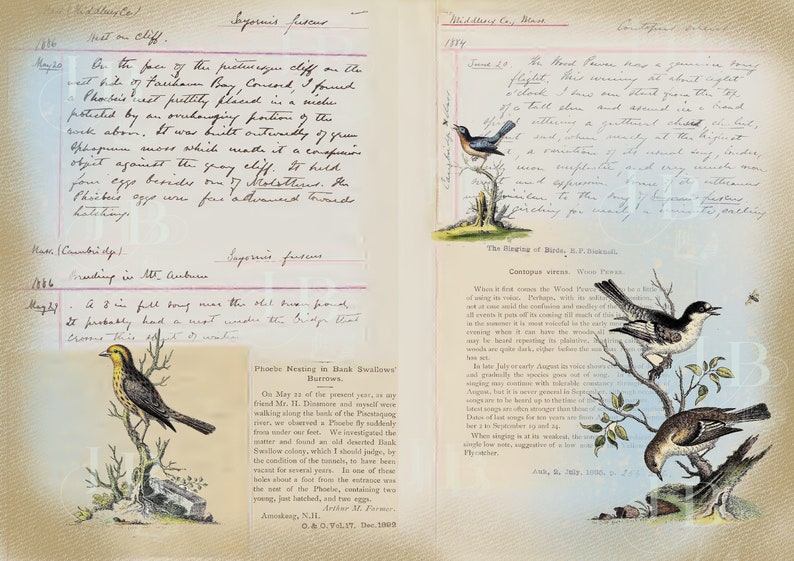 (Middlesex Co.)
Sayornis fuscus
1886
Nest on cliff.
May 20
On the face of the picturesque cliff on the
west side of Fairhaven Bay, Concord, I found
a Phoebe's nest prettily placed in a niche
protected by an overhanging portion of the
rock above. It was built outwardly of green
Sphagnum moss which made it a conspicuous
object against the gray cliff. It held
four eggs besides one of Molothrus. The
Phoebe's eggs were far advanced towards
hatching.
Mass. (Cambridge)
Sayornis fuscus
1886
Breeding in Mt. Auburn
May 29
A ♂ in full song near the old swan pond,
It probably had a nest under the bridge that
crosses this of water
Phoebe Nesting in Bank Swallows'
Burrows.
On May 22 of the present year, as my
friend Mr. H. Dinsmore and myself were
walking along the bank of the Piscataquog
river, we observed a Phoebe fly suddenly
from under our feet. We investigated the
matter and found an old deserted Bank
Swallow colony, which I should judge, by
the condition of the tunnels, to have been
vacant for several years. In one of these
holes about a foot from the entrance was
the nest of the Phoebe, containing two
young, just hatched, and two eggs.
Arthur M. Farmer.
Amoskeag, N.H.
O. & O. Vol. 17. Dec. 1892
Middlesex Co., Mass.
Contopus virens
1884
June 20
The Wood Pewee has a genuine song
flight. This evening at about eight
o'clock I saw one start from the top
of a tall elm and ascend in a broad
uttering a guttural
and, when nearly at the highest
a variation of its usual song, louder,
more emphatic and very much more
and expression. Some of its utterances
similar to the song of Sayornis fuscus
circling for nearly a minute, calling
The Singing of Birds. E.P. Bicknell.
Contopus virens. WOOD PEWEE.
When it first comes the Wood Pewee is a little
of using its voice. Perhaps, with its solitary
not at case amid the confusion and medley of
all events it puts off its coming till much of this
in the summer it is most voiceful in the early
evening when it can have the woods all
may be heard repeating its plaintive,
woods are quite dark, either before the sun
has set.
In late July or early August its voice shows
and gradually the species goes out of song.
singing may continue with tolerable constancy
August, but it is never general in September
songs are to be heard up to the time of
latest songs are often longer than those of
Dates of last songs for ten years are from
ber 2 to September 19 and 24.
When singing is at its weakest, the song
single low note, suggestive of a low note of
Flycatcher.
Auk, 2, July, 1885. p.